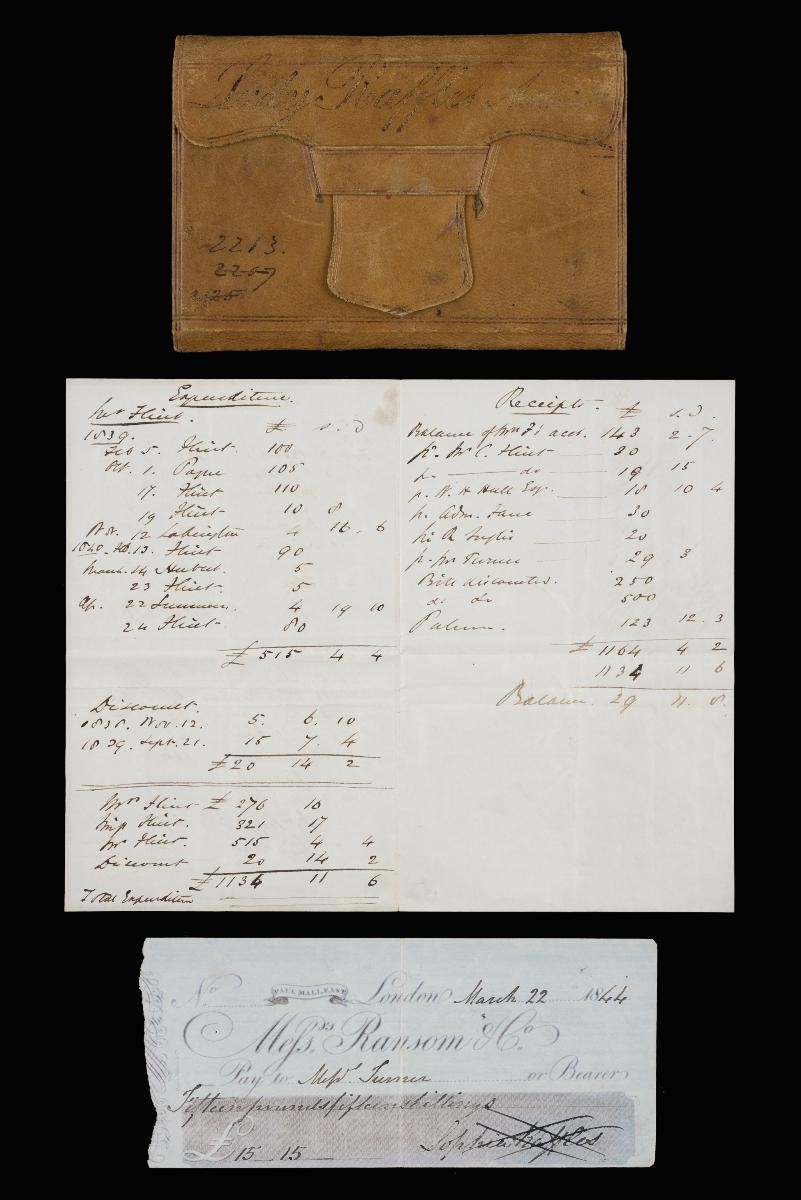 Lady Raffles
2213.
2207
Expenditure.
Mr Flint.
£ s. D
1839.
Feb 5. Flint 100
Oct. 1. Payne 105
17. Flint 110
19 Flint 10 8
Nov. 12 4 16 6
1840. Feb. 13. Flint 90
March. 14 5
23 Flint. 5
Ap. 22 4 19 10
24 Flint 80
£ 515 4 4
Discount.
1838. Nov. 12. 5. 6. 10
1839. Sept. 21. 15 7. 4
£ 20 14 2
Mrs Flint £ 276 10
Miss Flint. 321 17
Mr Flint. 515 4 4
Discount 20 14 2
£ 1134 11 6
Total Expenditure
Receipts.
£ s. D.
Balance of Mrs Fs acct. 143 2 7
pr. Mr C. Flint 20
pr do 19 15
p. W. H Hull Esq. 18 10 4
p. Adm. 30
pr R Inglis 20
pr Mr Turner 29 3
Bill discounted. 250
do do 500
123 12. 3
£ 1164 4 2
1134 11 6
Balance. 29 11. 8.
No. PALL MALL EAST London March 22 1844
Messrs Ransom & Co.
Pay to Messrs Turner or Bearer
Fifteen pounds fifteen shillings
£ 15 15 Sophia Raffles